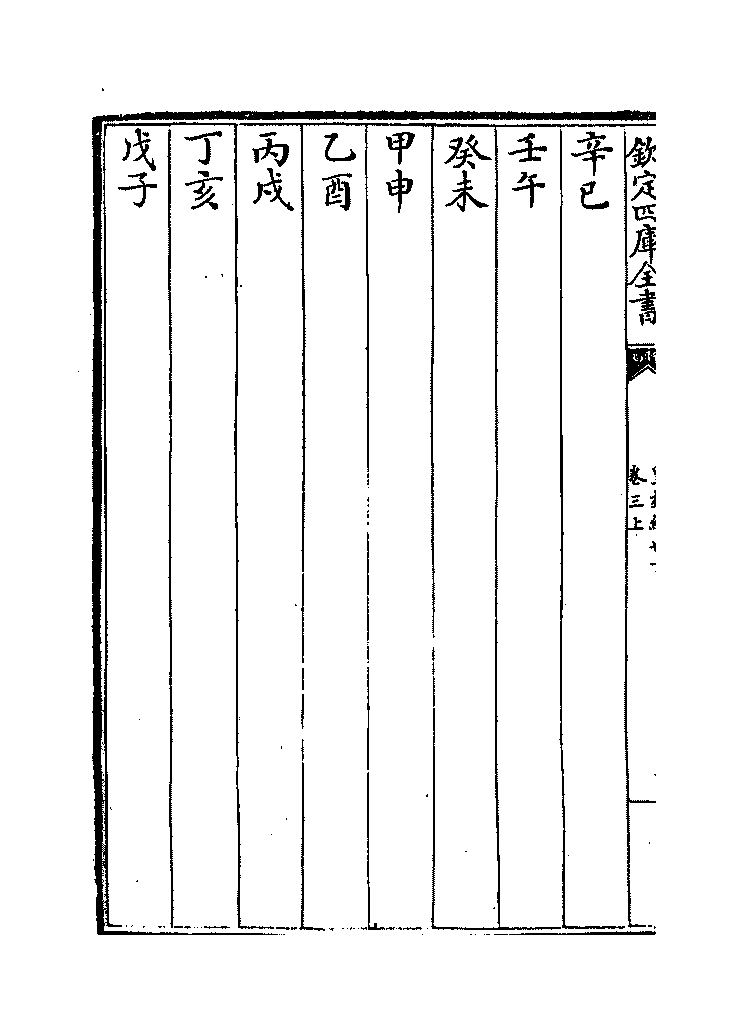 欽定四庫全書
卷三上
辛巳
壬午
癸未
甲申
乙酉
丙戌
丁亥
戊子